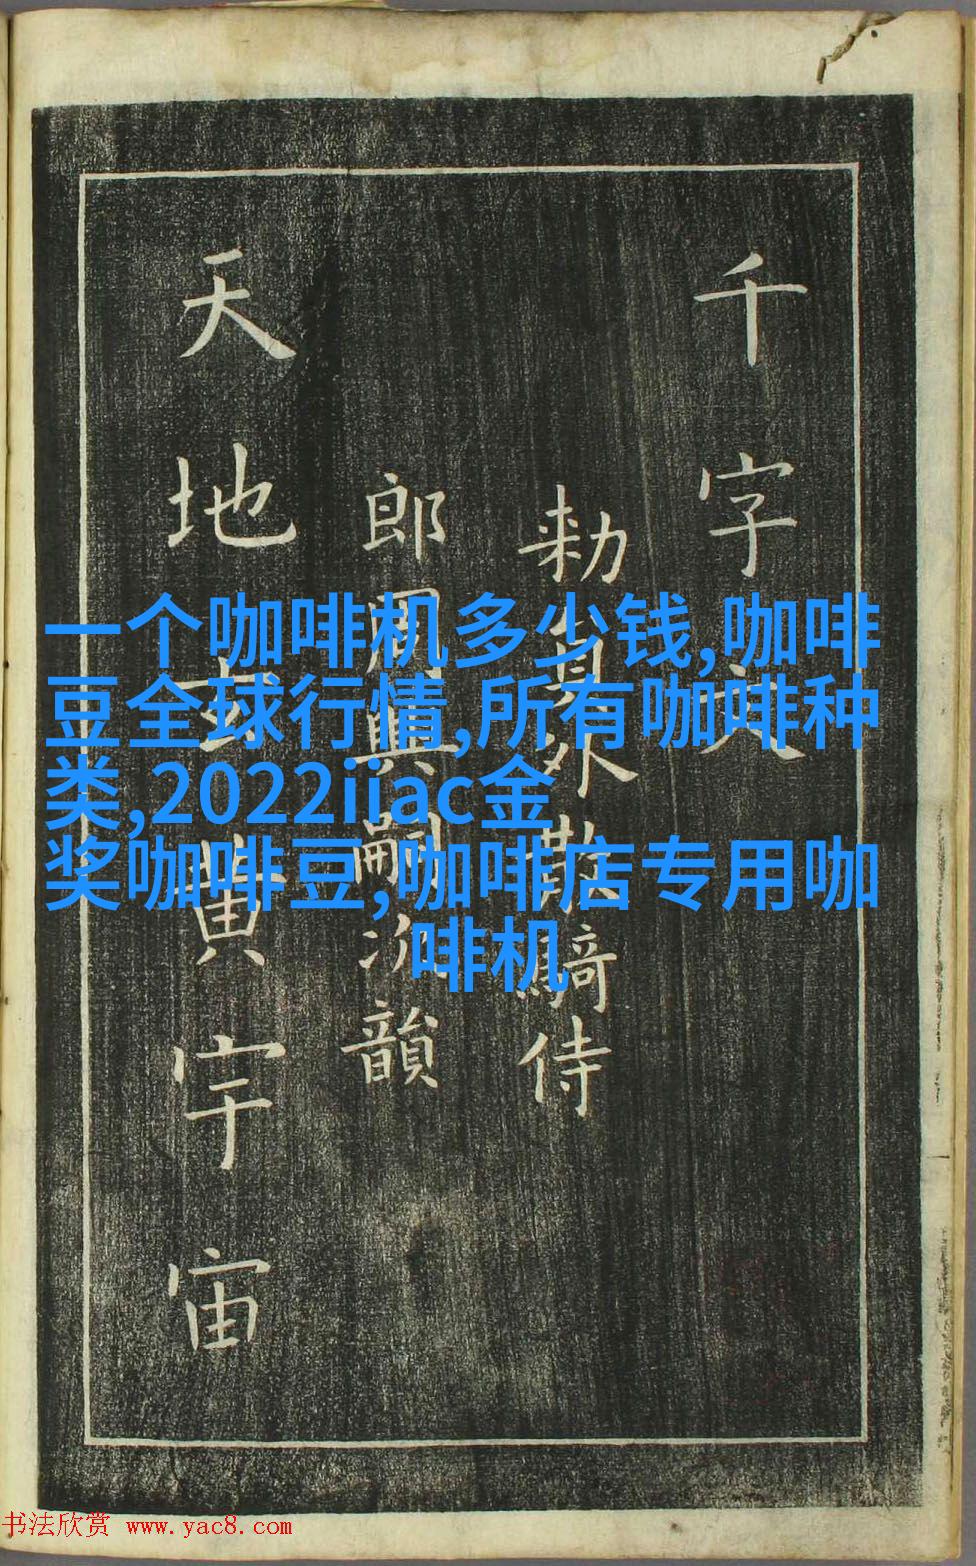 千字文
勑員外散騎侍
郎周興嗣次韻
天地玄黃宇宙
一个咖啡机多少钱,咖啡
豆全球行情,所有咖啡种
类,2022iiac金
奖咖啡豆,咖啡店专用咖
啡机
书法欣赏 www.yac8.com